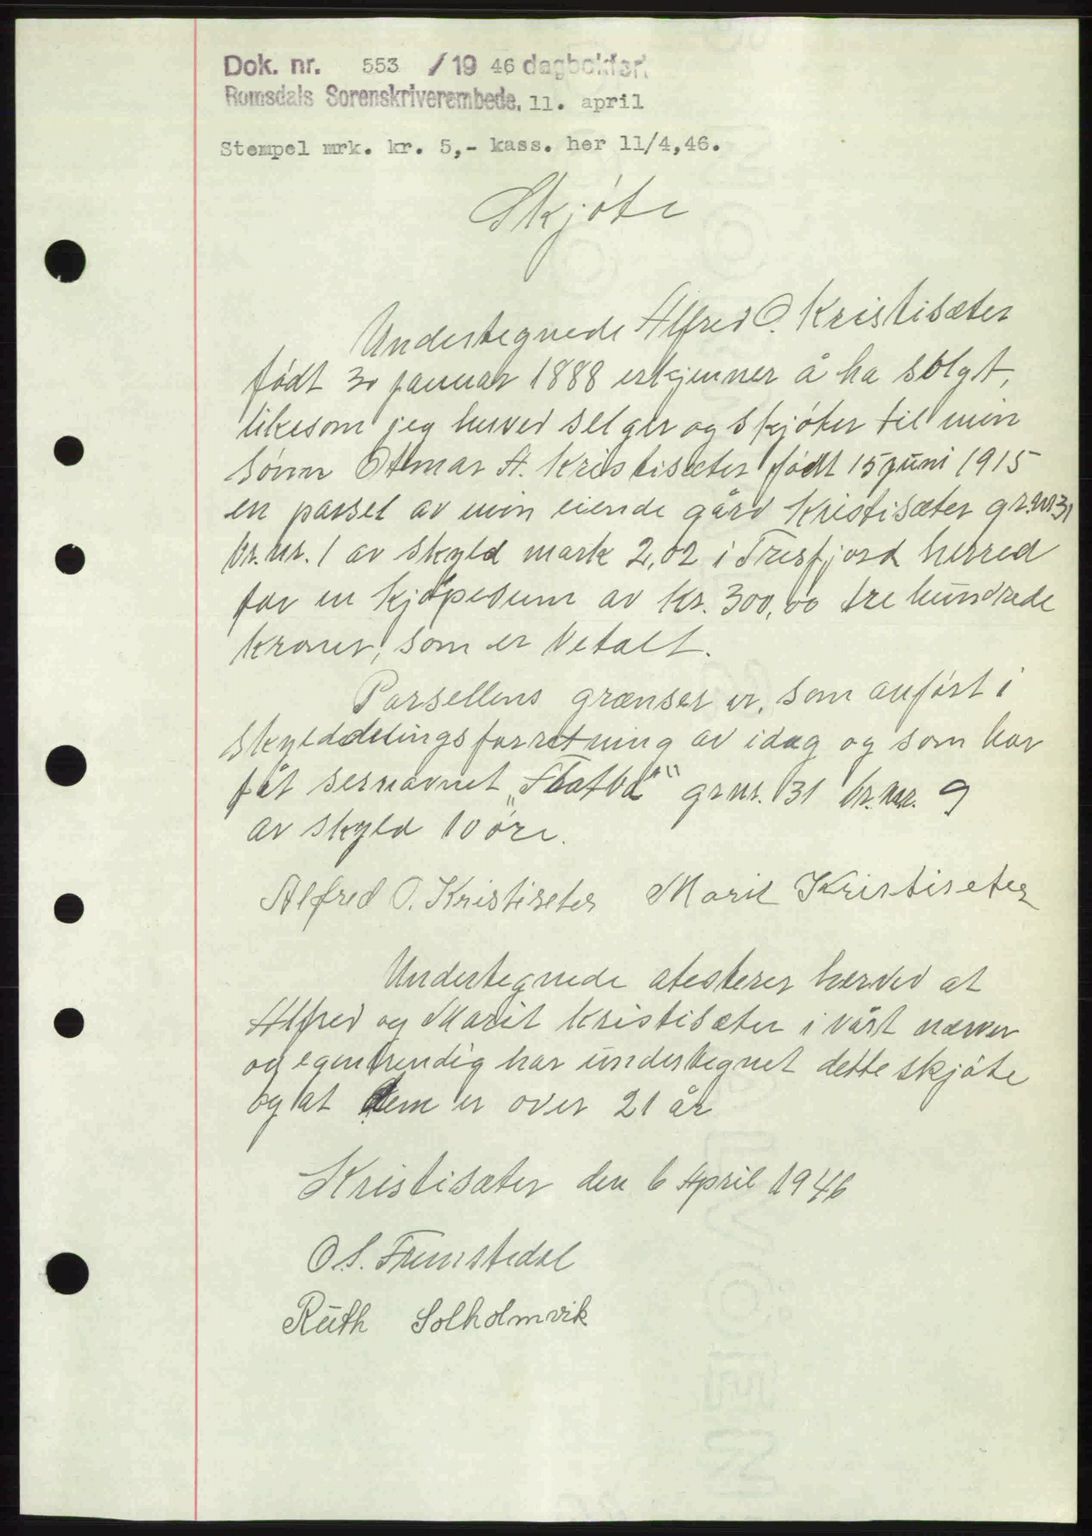 Dok. nr. 553 / 19 46 dagbokført
Romsdals Sorenskriverembede, 11. april
Stempel mrk. kr. 5,- kass. her 11/4,46.
Skjöte
Undertegnede Alfred O. Kristisæter
født 30 januar 1888 erkjenner å ha solgt,
likesom jeg herved selger og skjöter til min
sönn Otmar A. Kristisæter født 15 juni 1915
en parsel av min eiende gård Kristisæter gr.nr 31
br.nr. 1 av skyld mark 2,02 i Tresfjord herred
for en kjöpesum av kr. 300,00 tre hundrede
kroner, som er betalt.
Parsellens grænser er, som anført i
skylddelingsforretning av idag og som har
fåt sernavnet „ “ grnr. 31 br.nr. 9
av skyld 10 öre.
Alfred O. Kristiseter Marit Kristiseter
Undertegnede atesterer herved at
Alfred og Marit Kristisæter i vårt nærver
og egenhendig har undertegnet dette skjöte
og at dem er over 21 år
Kristisæter den 6 April 1946
O.S. Fremstedal
Ruth Solholmvik